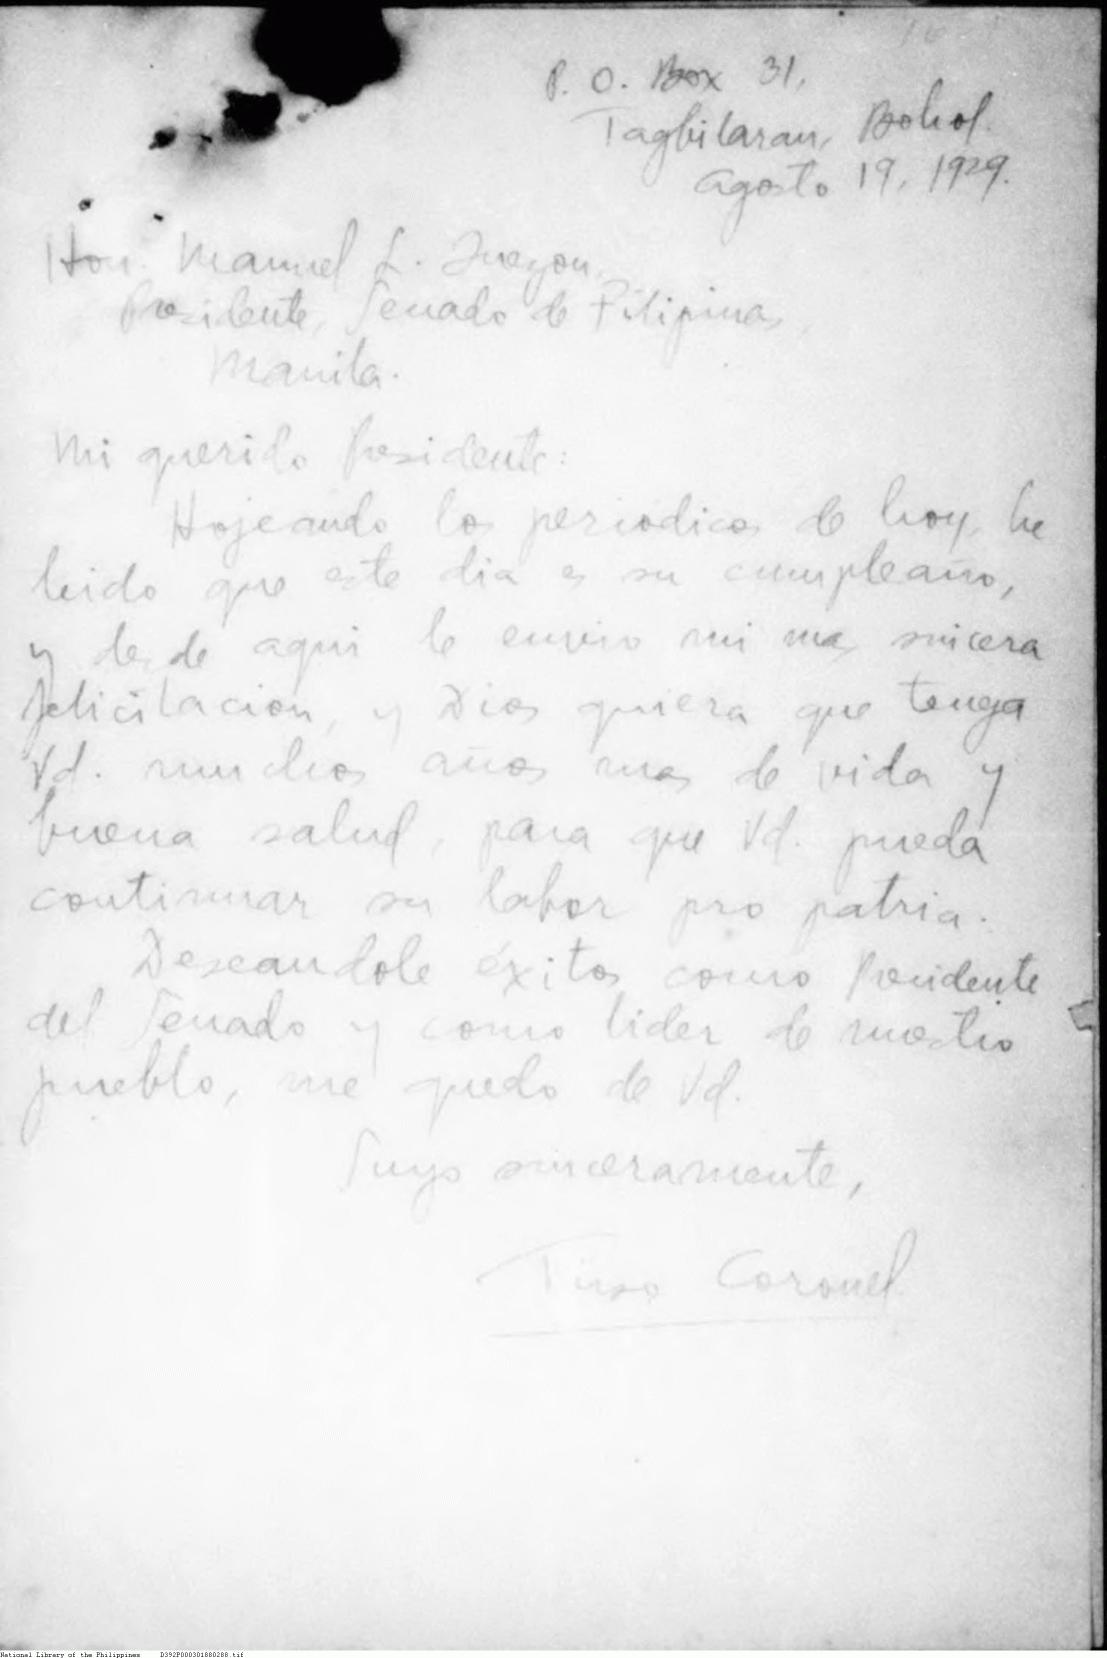 P. O. Box 31,
Tagbilaran, Bohol.
Agosto 19, 1929.
Hon. Manuel L. Quezon,
Presidente, Senado de Filipinas,
Manila.
Mi querido Presidente:
Hojeando los periodicos de hoy, he
leido que este dia es su cumpleaño,
y desde aqui le envio mi mas sincera
felicitacion, y Dios quiera que tenga
Vd. muchos años mas de vida y
buena salud, para que Vd. pueda
continuar su labor pro patria.
Deseandole éxitos como Presidente
del Senado y como lider de nuestro
pueblo, me quedo de Vd.
Suyo sinceramente,
Tirso Coronel
National Library of the Philippines D392P000301880288.tif